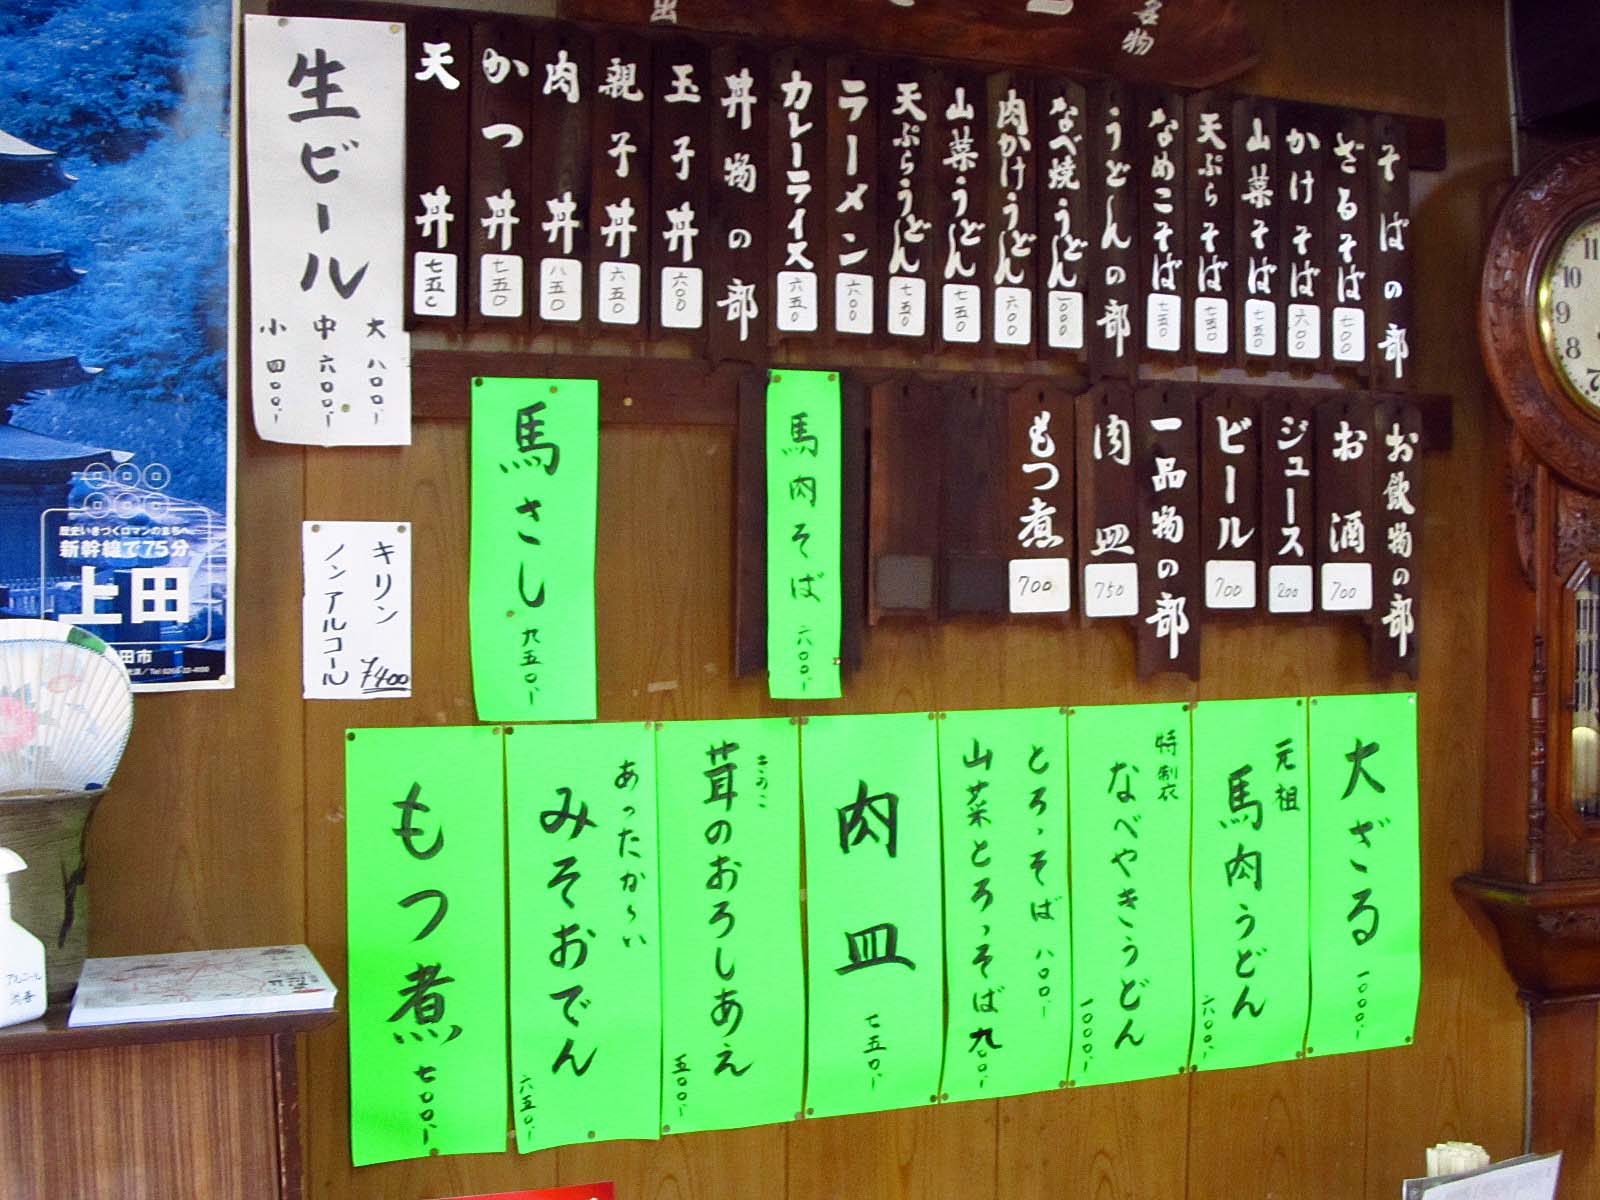 名物
出
そばの部
ざるそば 七〇〇
かけそば 六〇〇
山菜そば 七五〇
天ぷらそば 七五〇
なめこそば 七五〇
うどんの部
なべ焼うどん 一〇〇〇
肉かけうどん 六〇〇
山菜うどん 七五〇
天ぷらうどん 七五〇
ラーメン 六〇〇
カレーライス 六五〇
丼物の部
玉子丼 六〇〇
親子丼 六五〇
肉丼 八五〇
かつ丼 七五〇
天丼 七五〇
生ビール
大 八〇〇
中 六〇〇
小 四〇〇
お飲物の部
お酒 700
ジュース 200
ビール 700
一品物の部
肉皿 750
もつ煮 700
馬肉そば 六〇〇
馬さし 九五〇
キリン
ノンアルコール ¥400
大ざる 一〇〇〇
元祖
馬肉うどん 六〇〇
特製
なべやきうどん 一〇〇〇
とろゝそば 八〇〇
山菜とろゝそば 九〇〇
肉皿 七五〇
きのこ
茸のおろしあえ 五〇〇
あったか〜い
みそおでん 六五〇
もつ煮 七〇〇
歴史いきづくロマンのまちへ
新幹線で75分
上田
田市
アルコール
消毒
11
10
9
8
7